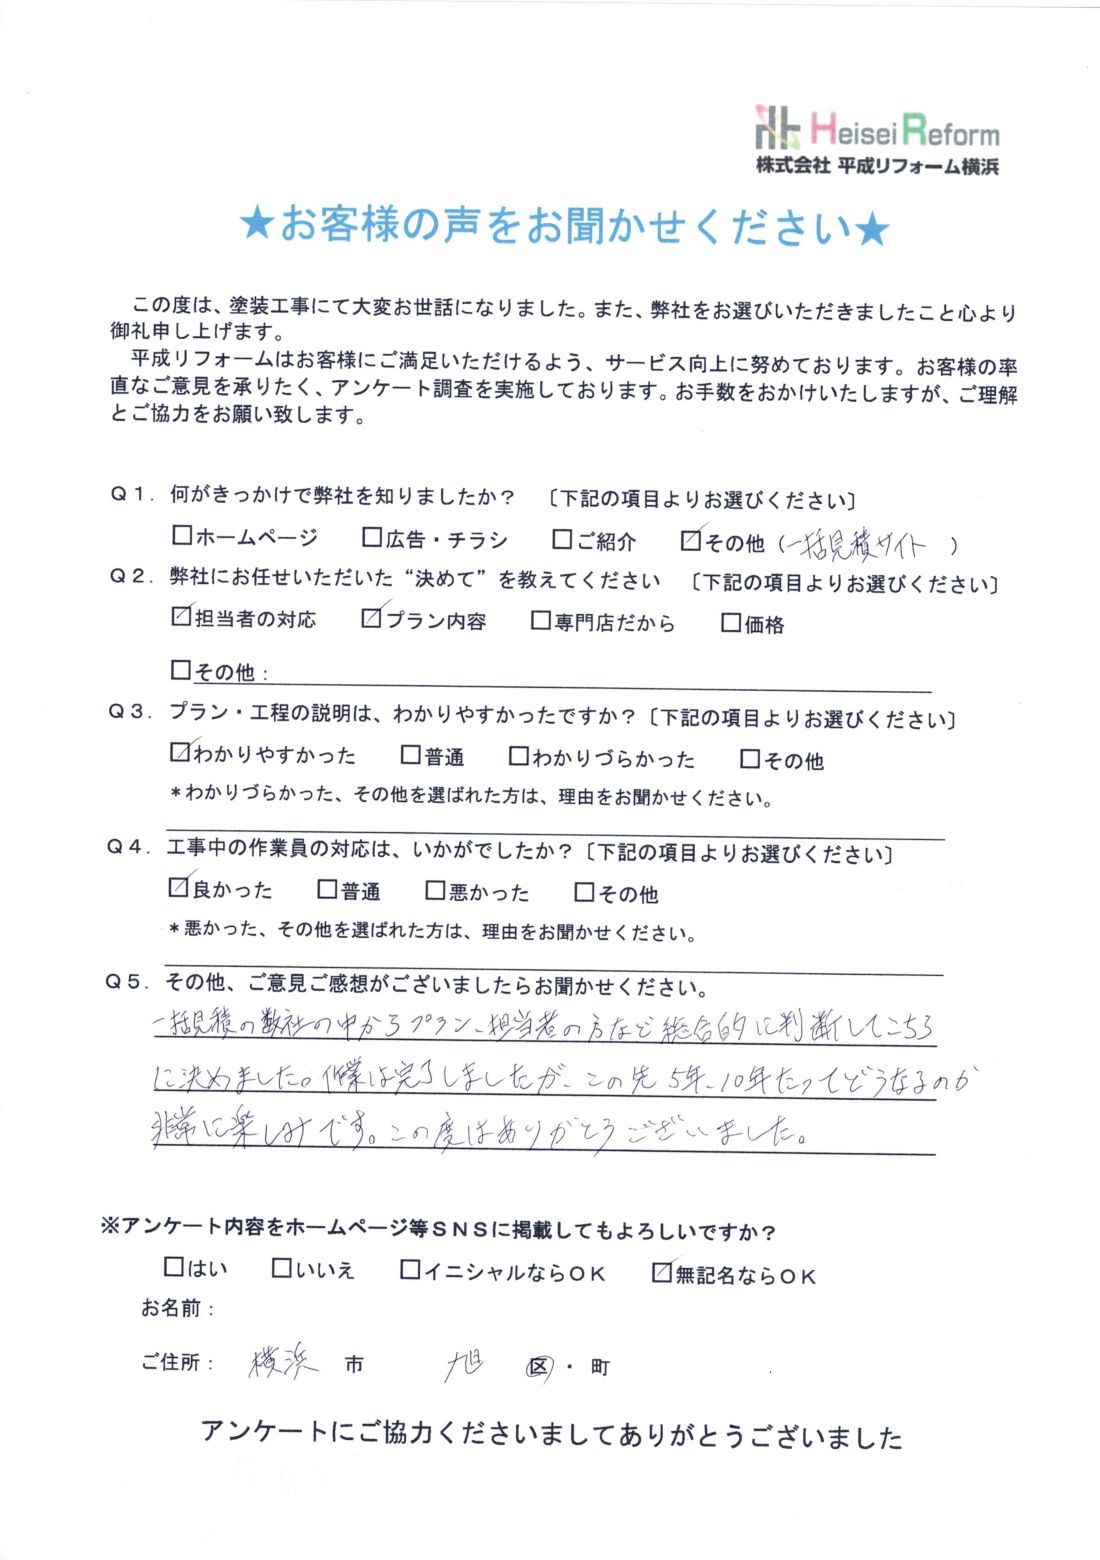 Heisei Reform
株式会社 平成リフォーム横浜
★お客様の声をお聞かせください★
この度は、塗装工事にて大変お世話になりました。また、弊社をお選びいただきましたこと心より
御礼申し上げます。
平成リフォームはお客様にご満足いただけるよう、サービス向上に努めております。お客様の率
直なご意見を承りたく、アンケート調査を実施しております。お手数をおかけいたしますが、ご理解
とご協力をお願い致します。
Q1. 何がきっかけで弊社を知りましたか? 〔下記の項目よりお選びください〕
□ホームページ □広告・チラシ □ご紹介 ☑その他(一括見積サイト )
Q2. 弊社にお任せいただいた“決めて”を教えてください 〔下記の項目よりお選びください〕
☑担当者の対応 ☑プラン内容 □専門店だから □価格
□その他:
Q3. プラン・工程の説明は、わかりやすかったですか?〔下記の項目よりお選びください〕
☑わかりやすかった □普通 □わかりづらかった □その他
*わかりづらかった、その他を選ばれた方は、理由をお聞かせください。
Q4. 工事中の作業員の対応は、いかがでしたか?〔下記の項目よりお選びください〕
☑良かった □普通 □悪かった □その他
*悪かった、その他を選ばれた方は、理由をお聞かせください。
Q5. その他、ご意見ご感想がございましたらお聞かせください。
一括見積の数社の中からプラン、担当者の方など総合的に判断してこちら
に決めました。作業は完了しましたが、この先5年、10年たってどうなるのか
非常に楽しみです。この度はありがとうございました。
※アンケート内容をホームページ等SNSに掲載してもよろしいですか?
□はい □いいえ □イニシャルならOK ☑無記名ならOK
お名前:
ご住所: 横浜 市 旭 区・町
アンケートにご協力くださいましてありがとうございました